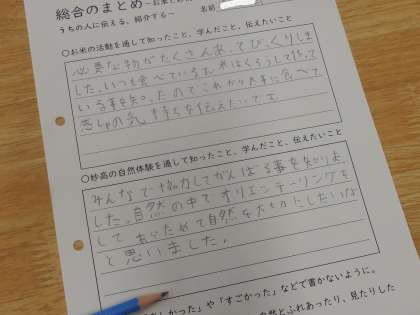 総合のまとめ
うちの人に伝える、紹介する～
名前
○お米の活動を通して知ったこと、学んだこと、伝えたいこと
必要な物がたくさんあってびっくりしま
した。いつも食べているお米はくろうして作って
いる事を知ったのでこれから大事に食べて
感しゃの気持ちを伝えたいです。
○妙高の自然体験を通して知ったこと、学んだこと、伝えたいこと
みんなで協力してがんばる事を知りま
した。自然の中でオリエンテーリングを
して あらためて自然を大切にしたいな
と思いました。
しかった」や「すごかった」などで書かないように。
然とふれあったり、見たりした